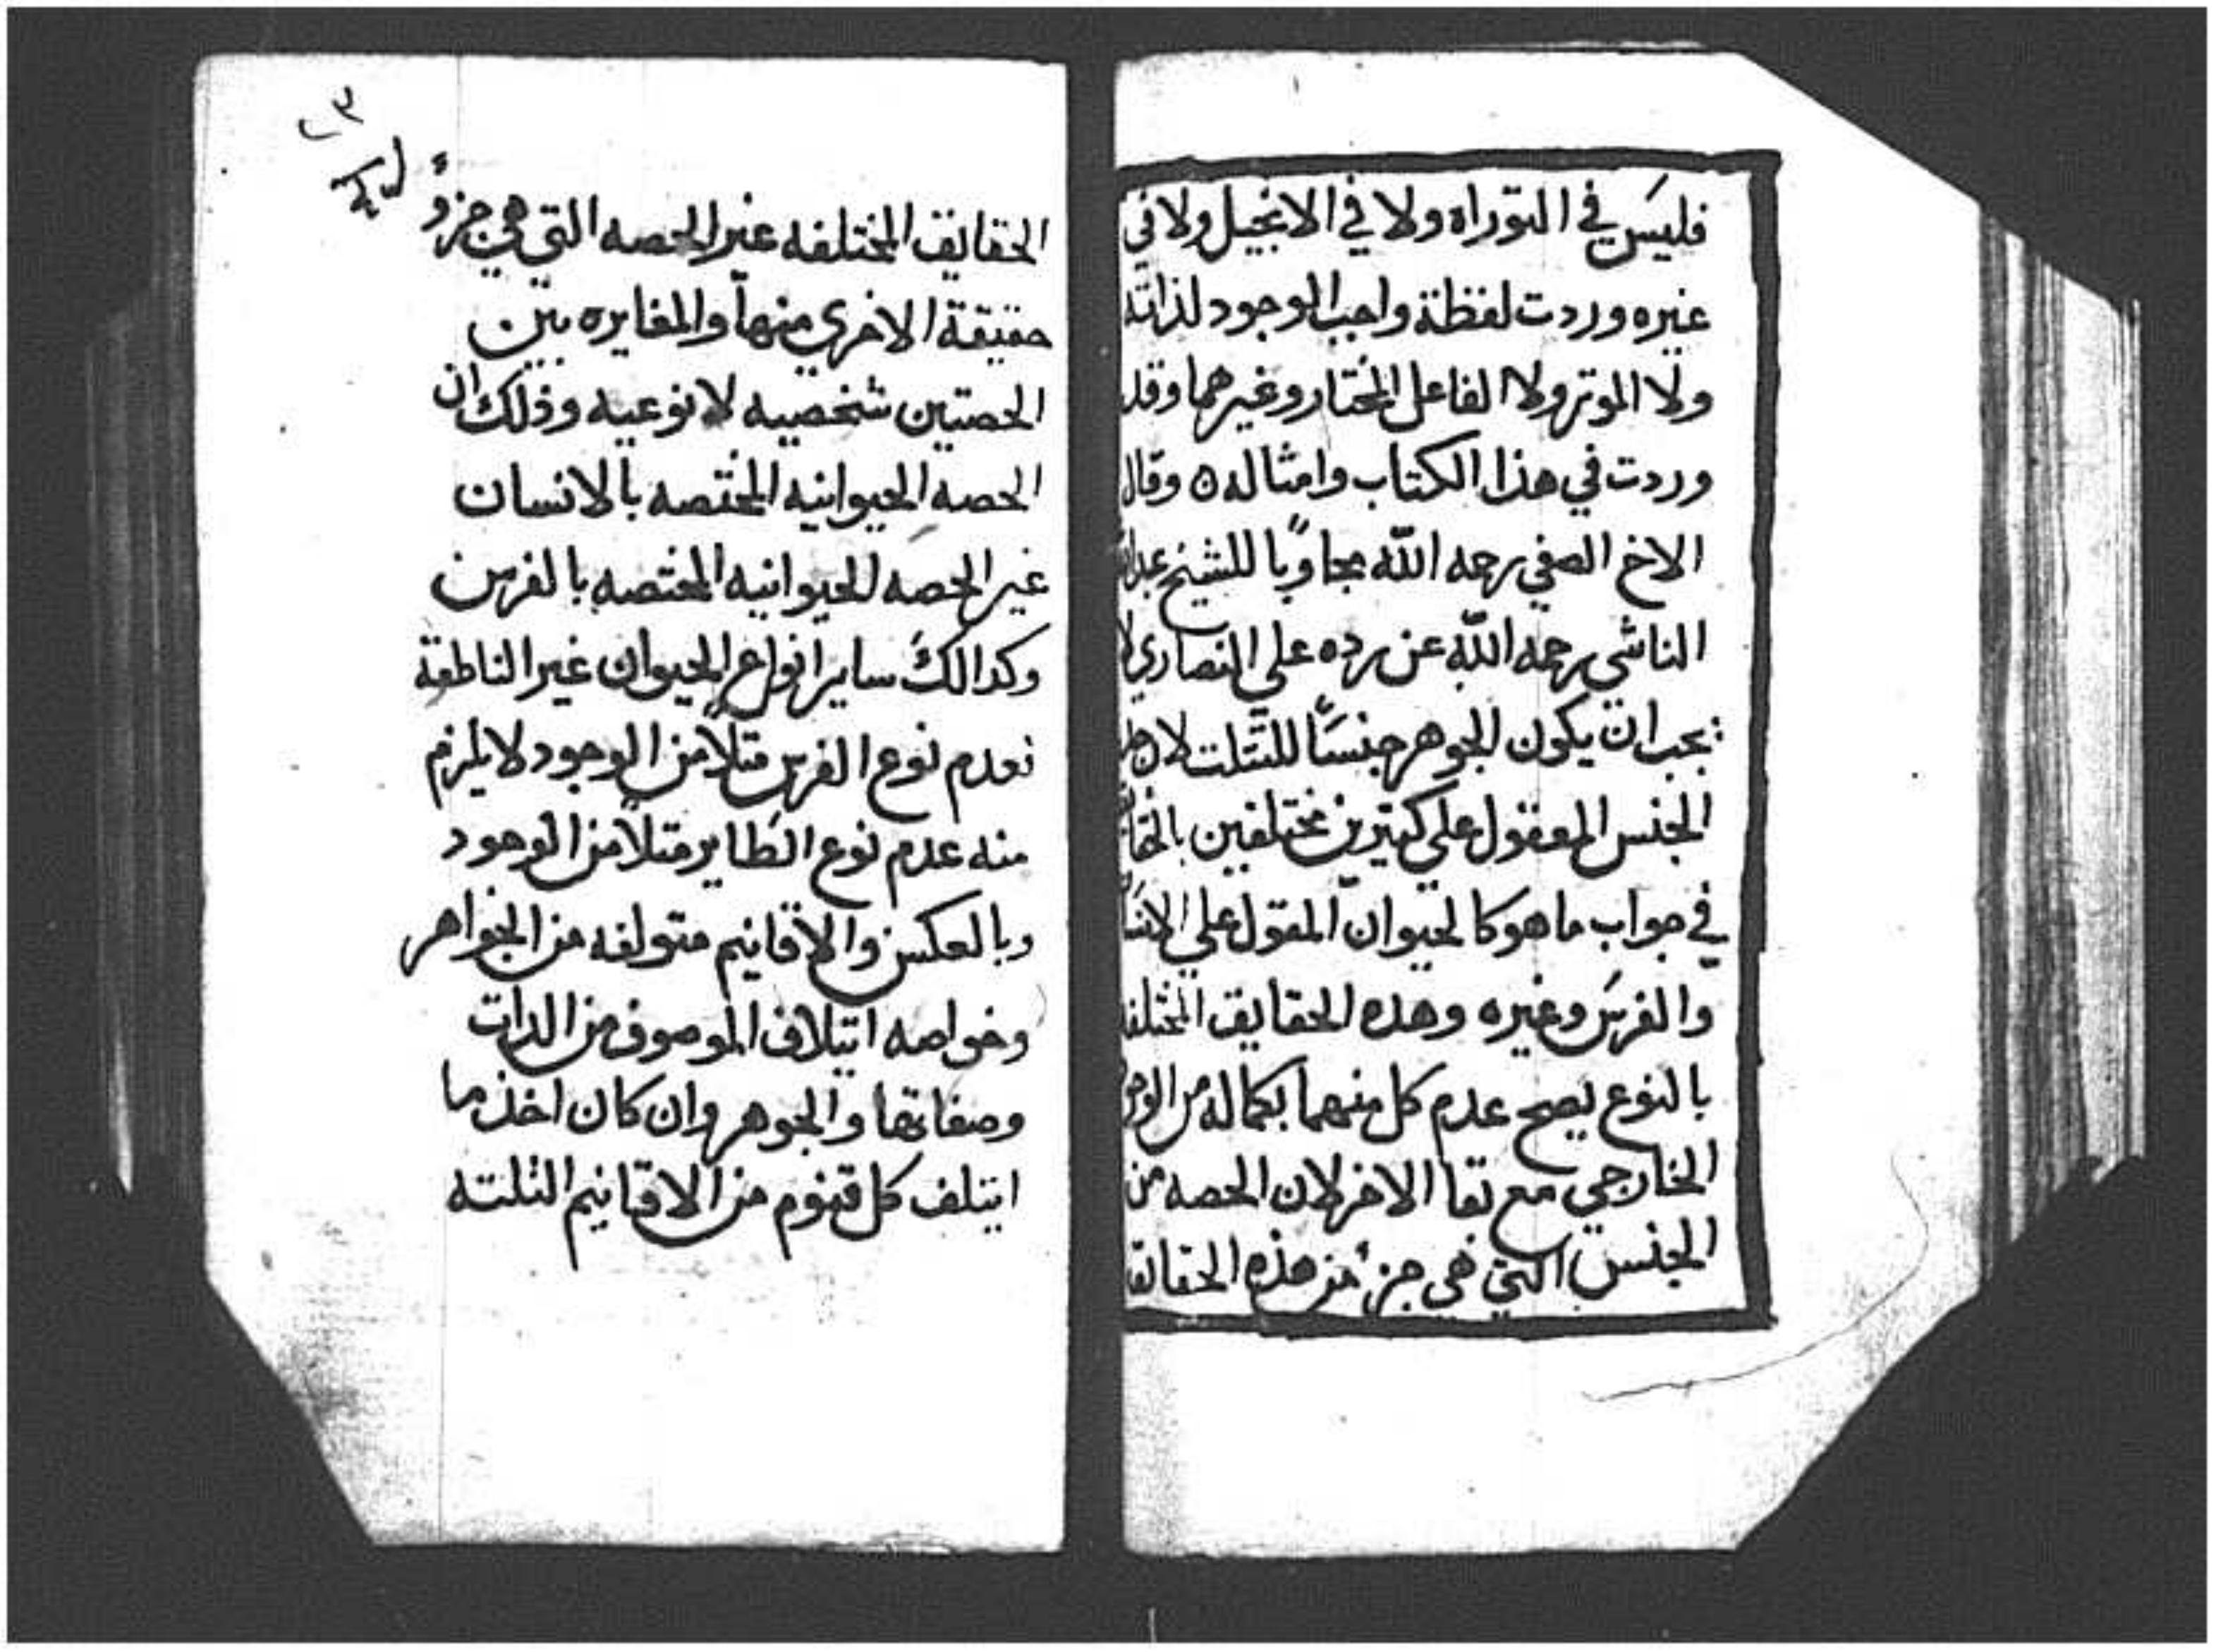 فليس في التوراه ولا في الانجيل ولا في
غيره وردت لفظة واجب الوجود لذاته
ولا الموتر ولا الفاعل المختار وغيرهما وقد
وردت في هذا الكتاب وامثاله ٥ وقال
الاخ الصفي رحمه الله مجاوبًا للشيخ
الناشي رحمه الله عن رده علي النصاري لا
يجب ان يكون الجوهر جنسًا للتتلت لان
الجنس المعقول علي كتيرين مختلفين
في جواب ما هو كالحيوان المقول علي
والفرس وغيره وهده الحقايق المختلفه
بالنوع يصح عدم كل منهما بكماله من
الخارجي مع بقا الاخر لان الحصه من
الجنس التي هي جزء من هذه الحقايق
الحقايق المختلفه غير الحصه التي هي جزؤ
حقيقة الاخري منها والمغايره بين
الحصتين شخصيه لا نوعيه وذلك ان
الحصه الحيوانيه المختصه بالانسان
غير الحصه الحيوانيه المختصه بالفرس
وكدالك ساير انواع الحيوان غير الناطقة
فعدم نوع الفرس متلًا من الوجود لا يلزم
منه عدم نوع الطاير متلًا من الوجود
وبالعكس والاقانيم متولفه من الجواهر
وخواصه ايتلاف الموصوف من الدات
وصفاتها والجوهر وان كان اخذ ما
ايتلف كل قنوم من الاقانيم التلته